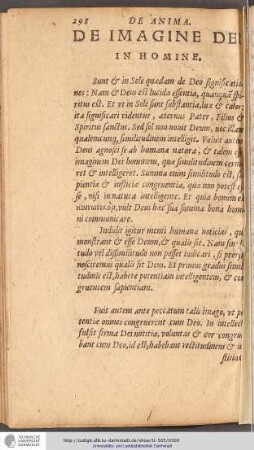 298 DE ANIMA.
DE IMAGINE DEI
IN HOMINE.
Sunt & in Sole quædam de Deo significatio
nes: Nam & Deus est lucida essentia, quanquā
ritus est. Et vt in Sole sunt substantia, lux & calor
ita significari videntur, æternus Pater, Filius &
Spiritus sanctus. Sed sol non nouit Deum, nec illam
qualemcunq; similitudinem intelligit. Voluit autem
Deus agnosci se ab humana natura, & talem
imaginem Dei hominem, quæ similitudinem cerne
ret & intelligeret. Summa enim similitudo est,
pientia & iustitia congruentia, quæ non potest es
se, nisi in natura intelligente. Et quia bonum est
vult Deus hæc sua summa bona homi
ni communicare.
Indidit igitur menti humanæ noticias, quæ
monstrant & esse Deum, & qualis sit. Nam
tudo vel dissimilitudo non posset iudicari, si
nosceremus qualis sit Deus. Et primus gradus simili
tudinis est, habere potentiam intelligentem, & con
gruentem sapientiam.
Fuit autem ante peccatum talis imago, vt po
tentiæ omnes congruerent cum Deo. In intellectu
fulsit firma Dei noticia, voluntas & cor congrue
bant cum Deo, id est, habebant rectitudinem &
stitiam